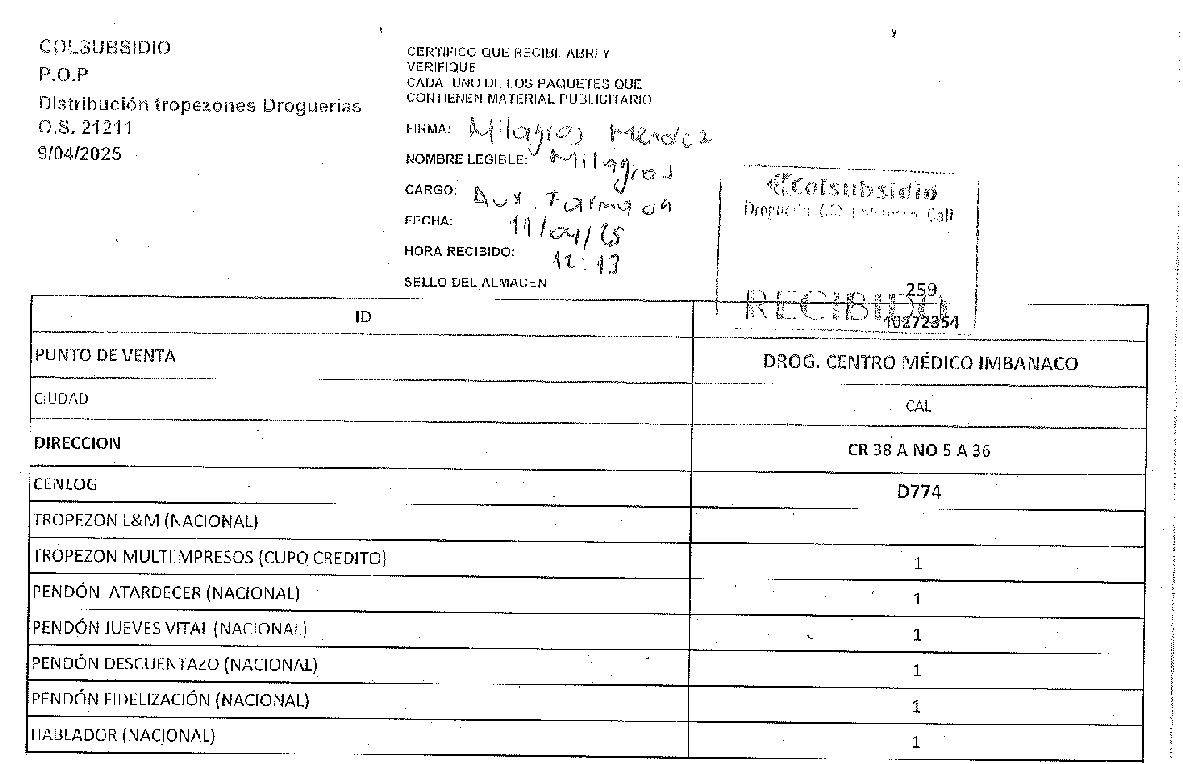 COLSUBSIDIO
P.O.P
Distribución tropezones Droguerias
O.S. 21211
9/04/2025
CERTIFICO QUE RECIBI, ABRI Y
VERIFIQUE
CADA UNO DE LOS PAQUETES QUE
CONTIENEN MATERIAL PUBLICITARIO
FIRMA: Milagros Mendez
NOMBRE LEGIBLE: Milagros
CARGO: Aux. Farmacia
FECHA: 11/04/25
HORA RECIBIDO: 12:13
SELLO DEL ALMACEN
Colsubsidio
Cali
RECIBIDO
259
ID 10272354
PUNTO DE VENTA DROG. CENTRO MÉDICO IMBANACO
CIUDAD CAL
DIRECCION CR 38 A NO 5 A 36
CENLOG D774
TROPEZON L&M (NACIONAL)
TROPEZON MULTIEMPRESOS (CUPO CREDITO) 1
PENDÓN ATARDECER (NACIONAL) 1
PENDÓN JUEVES VITAL (NACIONAL) 1
PENDÓN DESCUENTAZO (NACIONAL) 1
PENDÓN FIDELIZACIÓN (NACIONAL) 1
HABLADOR (NACIONAL) 1